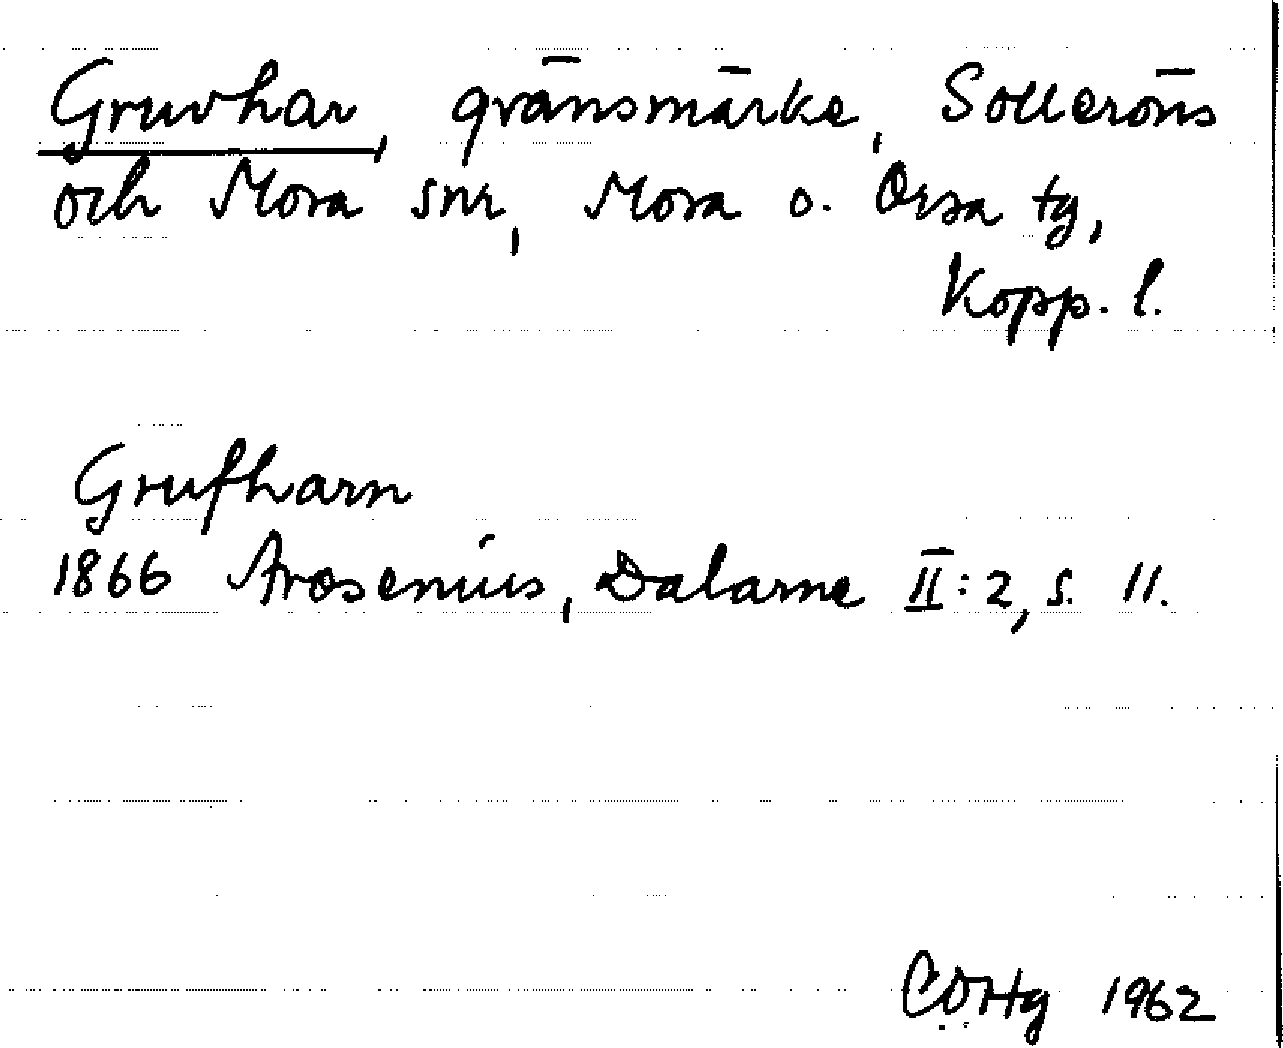 Gruvhar, gränsmärke, Solleröns
och Mora snr, Mora o. Orsa tg,
Kopp. l.
Grufharn
1866 Arosenius, Dalarne II:2, s. 11.
1962